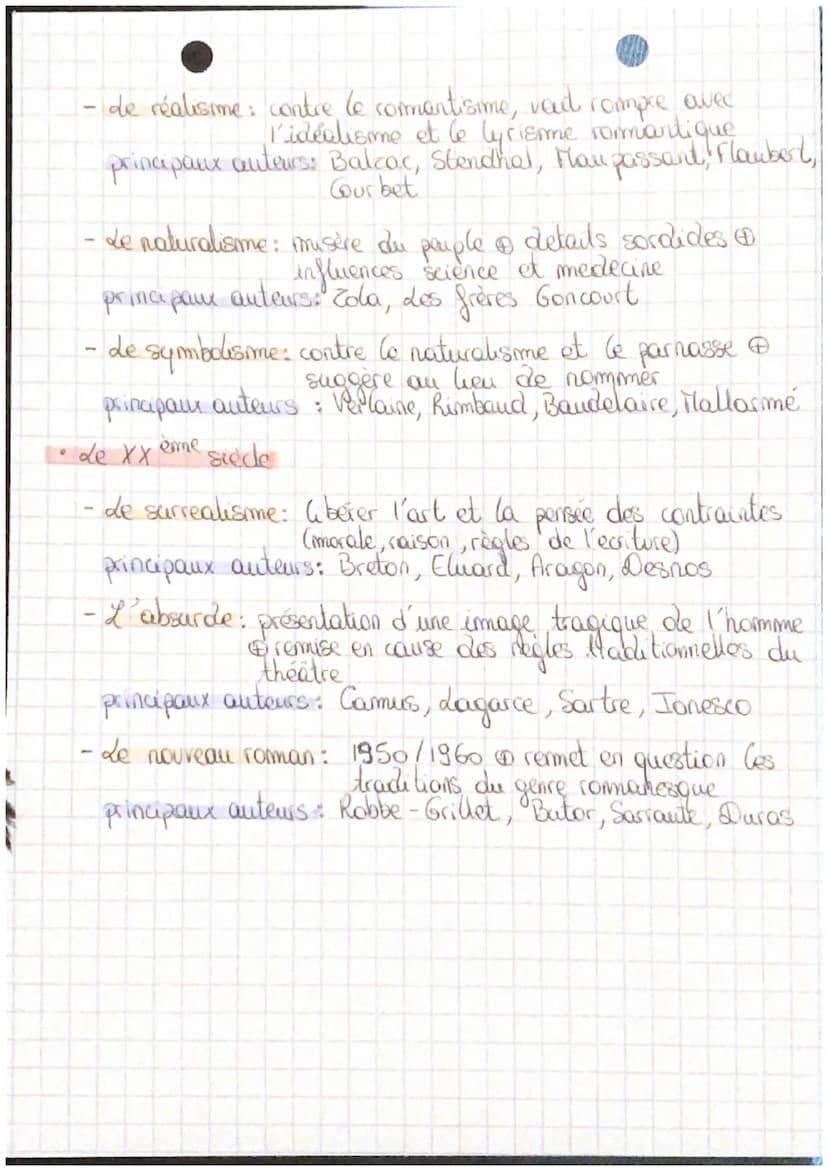 - Le réalisme : contre le romantisme, veut rompre avec
l'idéalisme et le lyrisme romantique
principaux auteurs : Balzac, Stendhal, Maupassant, Flaubert,
Courbet
- Le naturalisme : misère du peuple ⊕ details sordides ⊕
influences science et medecine
principaux auteurs : Zola, Les frères Goncourt
- Le symbolisme : contre le naturalisme et le parnasse ⊕
suggère au lieu de nommer
principaux auteurs : Verlaine, Rimbaud, Baudelaire, Mallarmé
• Le XX ème siècle
- Le surrealisme : libérer l'art et la pensée des contraintes
(morale, raison, règles de l'ecriture)
principaux auteurs : Breton, Eluard, Aragon, Desnos
- L'absurde : présentation d'une image tragique de l'homme
⊕ remise en cause des règles traditionnelles du
théâtre
principaux auteurs : Camus, Lagarce, Sartre, Ionesco
- Le nouveau roman : 1950/1960 ⊕ remet en question les
traditions du genre romanesque
principaux auteurs : Robbe-Grillet, Butor, Sarraute, Duras